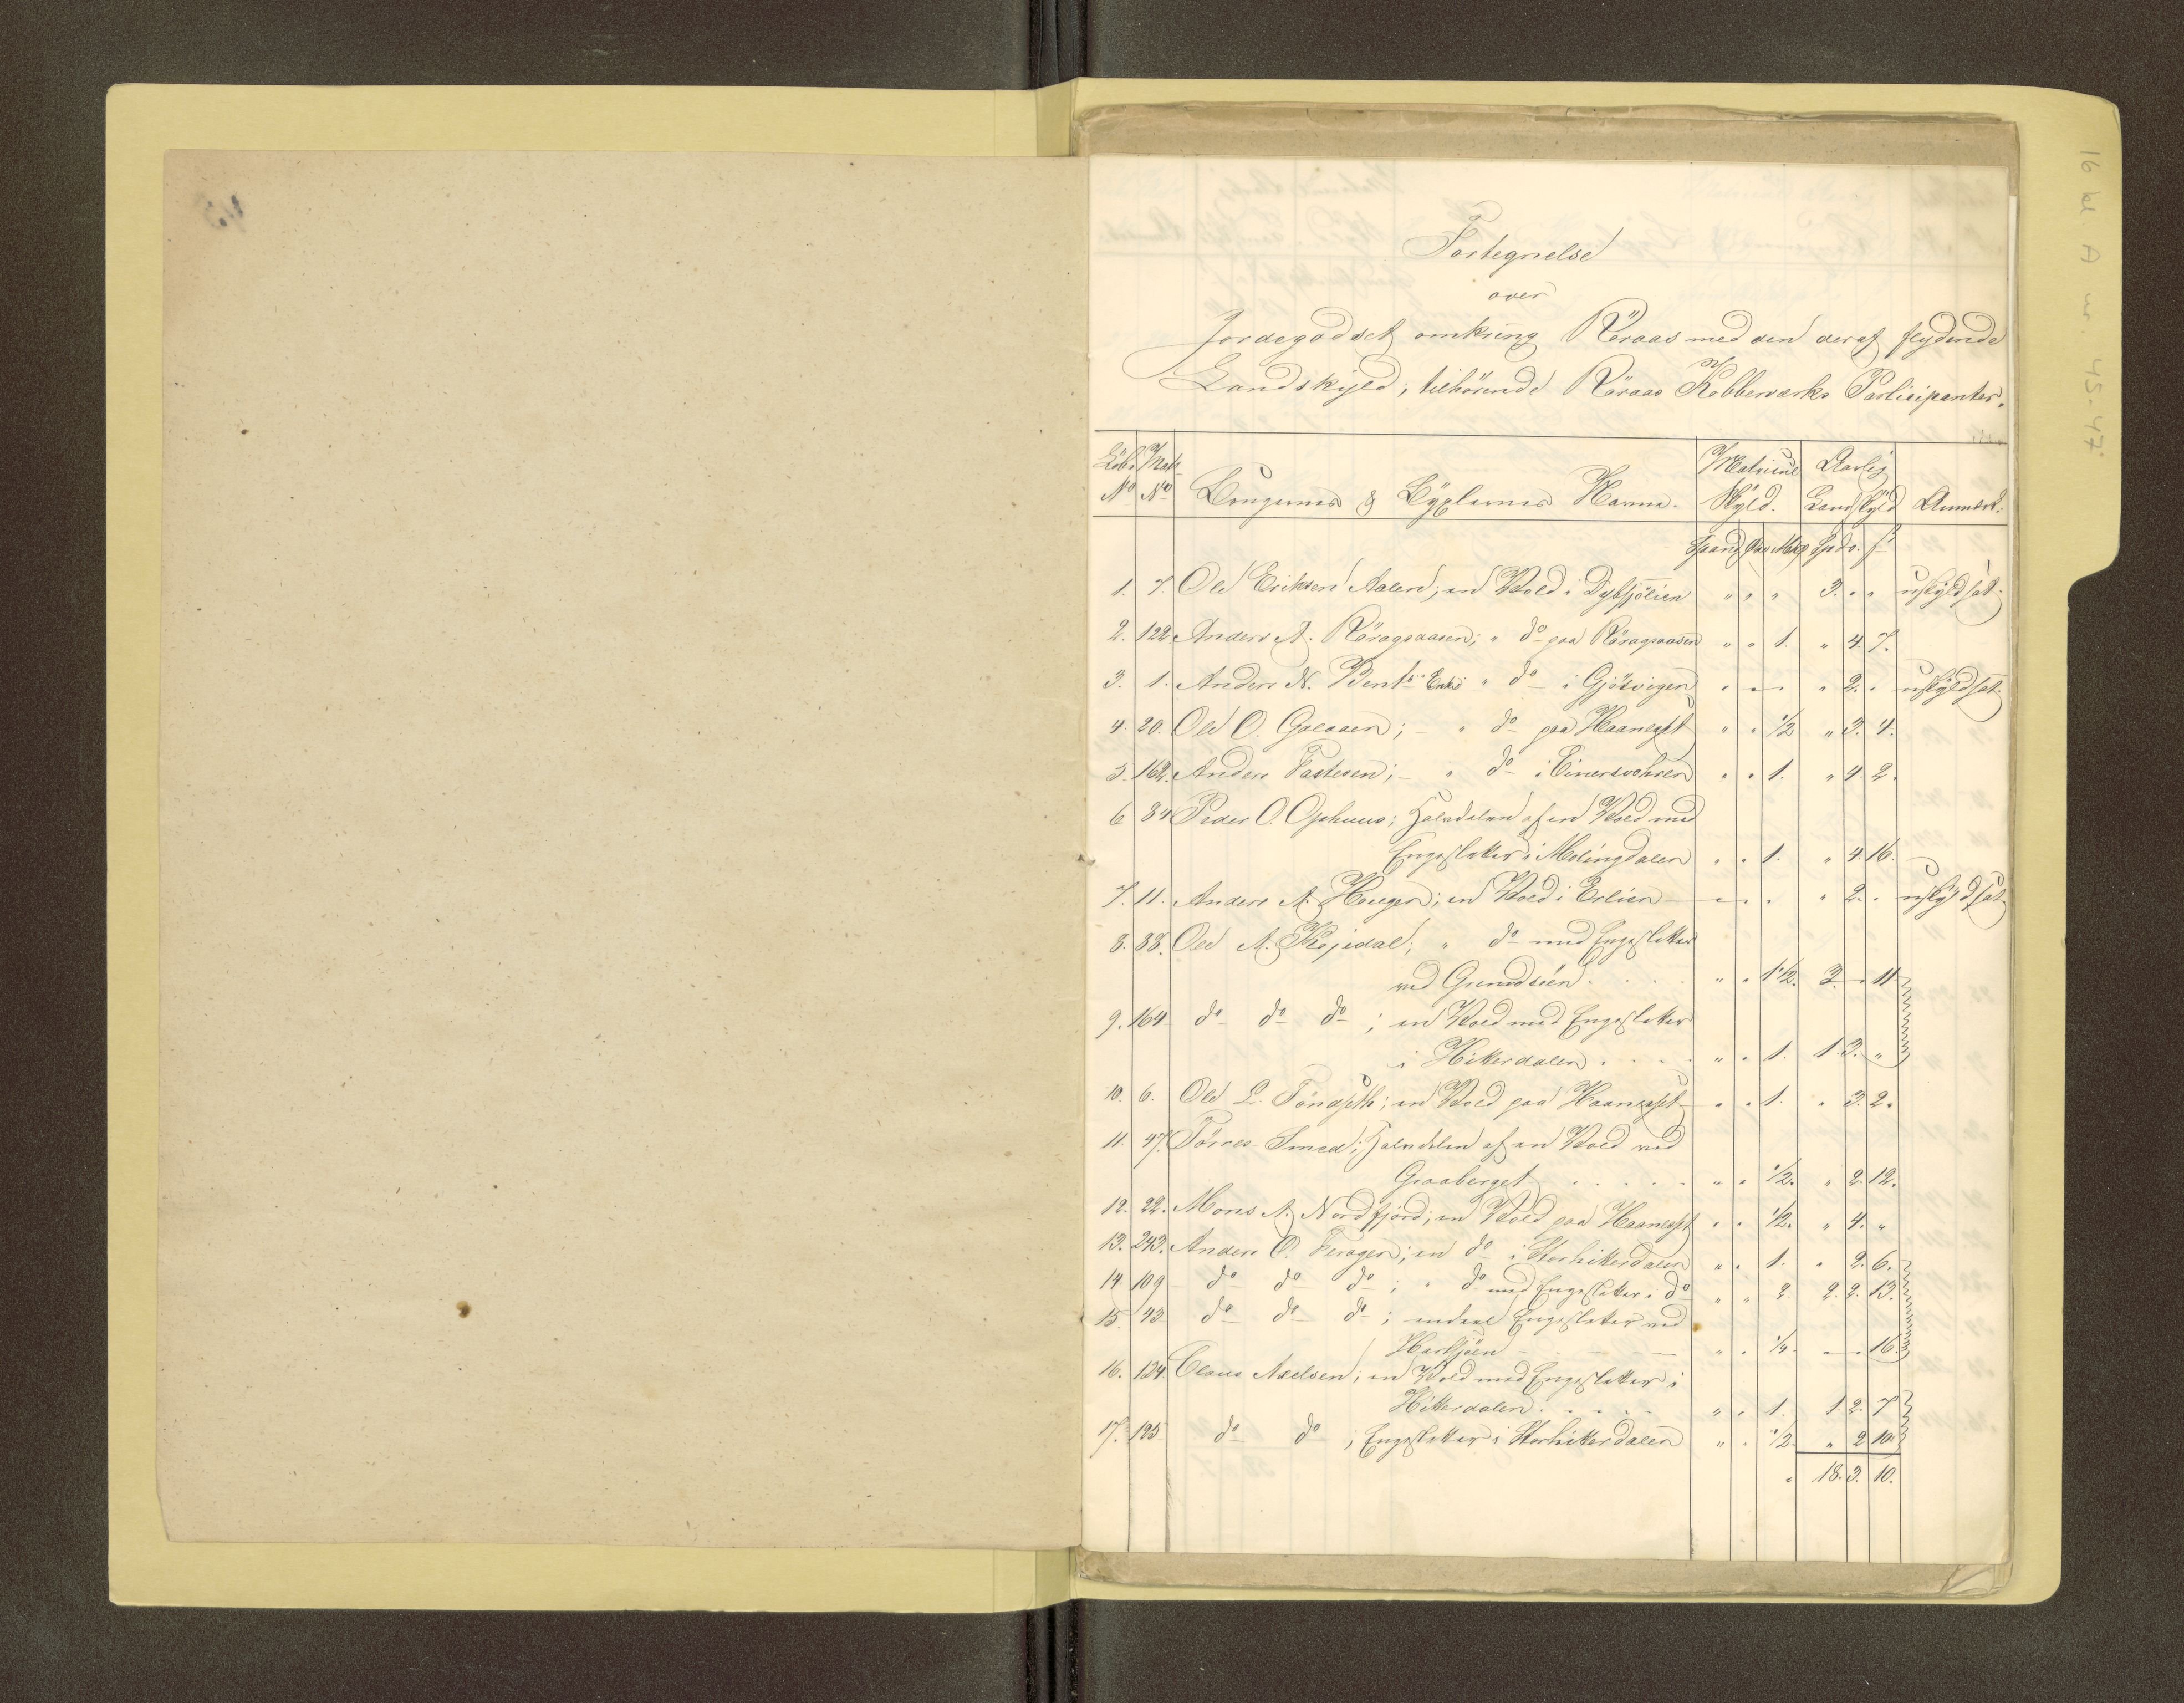 16 kl A nr. 45-47
Fortegnelse
over
Jordegodset omkring Röraas med den deraf flydende
Landskyld, tilhörende Röraas Kobberværks Participanter.
Löb. Mat. Matricul Aarlig
No No Brugernes & Bÿxlernes Navne. Skÿld. Landskÿld Anmærk.
Spand Öre Mkl Spd. o. ß
1. 7. Ole Eriksen Aalen; en Vold i Dybsjölien " " " 3. " " uskÿldsat.
2. 122. Anders A. Röragsaasen; " do paa Röragsaasen " " 1. " 4. 7.
3. 1. Anders N. Bents Enke " do i Gjösvigen " " " " 2. " uskÿldsat.
4. 20. Ole O. Galaaen; " do paa Haaneset " " 1/2 " 3. 4.
5. 162. Anders Tastesen; " do i Einersvohren " " 1. " 4. 2.
6 84 Peder O. Ophuus; Halvdelen af en Vold med
Engesletter i Molingdalen " " 1. " 4. 16.
7. 11. Anders A. Hougen; en Vold i Erlien " " " " 2. " uskÿldsat
8. 88. Ole A. Skjesdal; " do med Engesletter
ved Grundsöen " " 1 1/2. 3 " 11
9. 164 do do do; en Vold med Engesletter
i Hitterdalen " " 1. 1. 3. "
10. 6. Ole L. Tönseth; en Vold paa Haaneset " " 1. " 3. 2.
11. 47. Törres Smed; Halvdelen af en Vold ved
Graaberget " " 1/2. " 2. 12.
12. 22. Mons A. Nordfjord; en Vold paa Haaneset " " 1/2. " 4. "
13. 243. Anders O. Feragen; en do i Storhitterdalen " " 1. " 2. 6.
14. 109 do do do; " do med Engesletter i do " " 2. 2. 2. 13.
15. 43 do do do; endeel Engesletter ved
Harsjöen " " 1/4. " " 16.
16. 124. Claus Axelsen; en Vold med Engesletter i
Hitterdalen " " 1. 1. 2. 7
17. 125 do do; Engesletter i Storhitterdalen " " 1/2 " 2 10.
" 18. 3. 10.